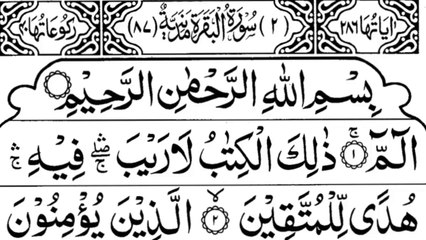 اٰیَاتُهَا ٢٨٦ (٢) سُوْرَةُ الْبَقَرَةِ مَدَنِیَّةٌ (٨٧) رُكُوْعَاتُهَا ٤٠
بِسْمِ اللّٰهِ الرَّحْمٰنِ الرَّحِیْمِ
الٓمّٓ ۚ ١ ذٰلِكَ الْكِتٰبُ لَا رَیْبَ ۛۖ فِیْهِ ۛۚ
هُدًی لِّلْمُتَّقِیْنَ ۙ ٢ الَّذِیْنَ یُؤْمِنُوْنَ